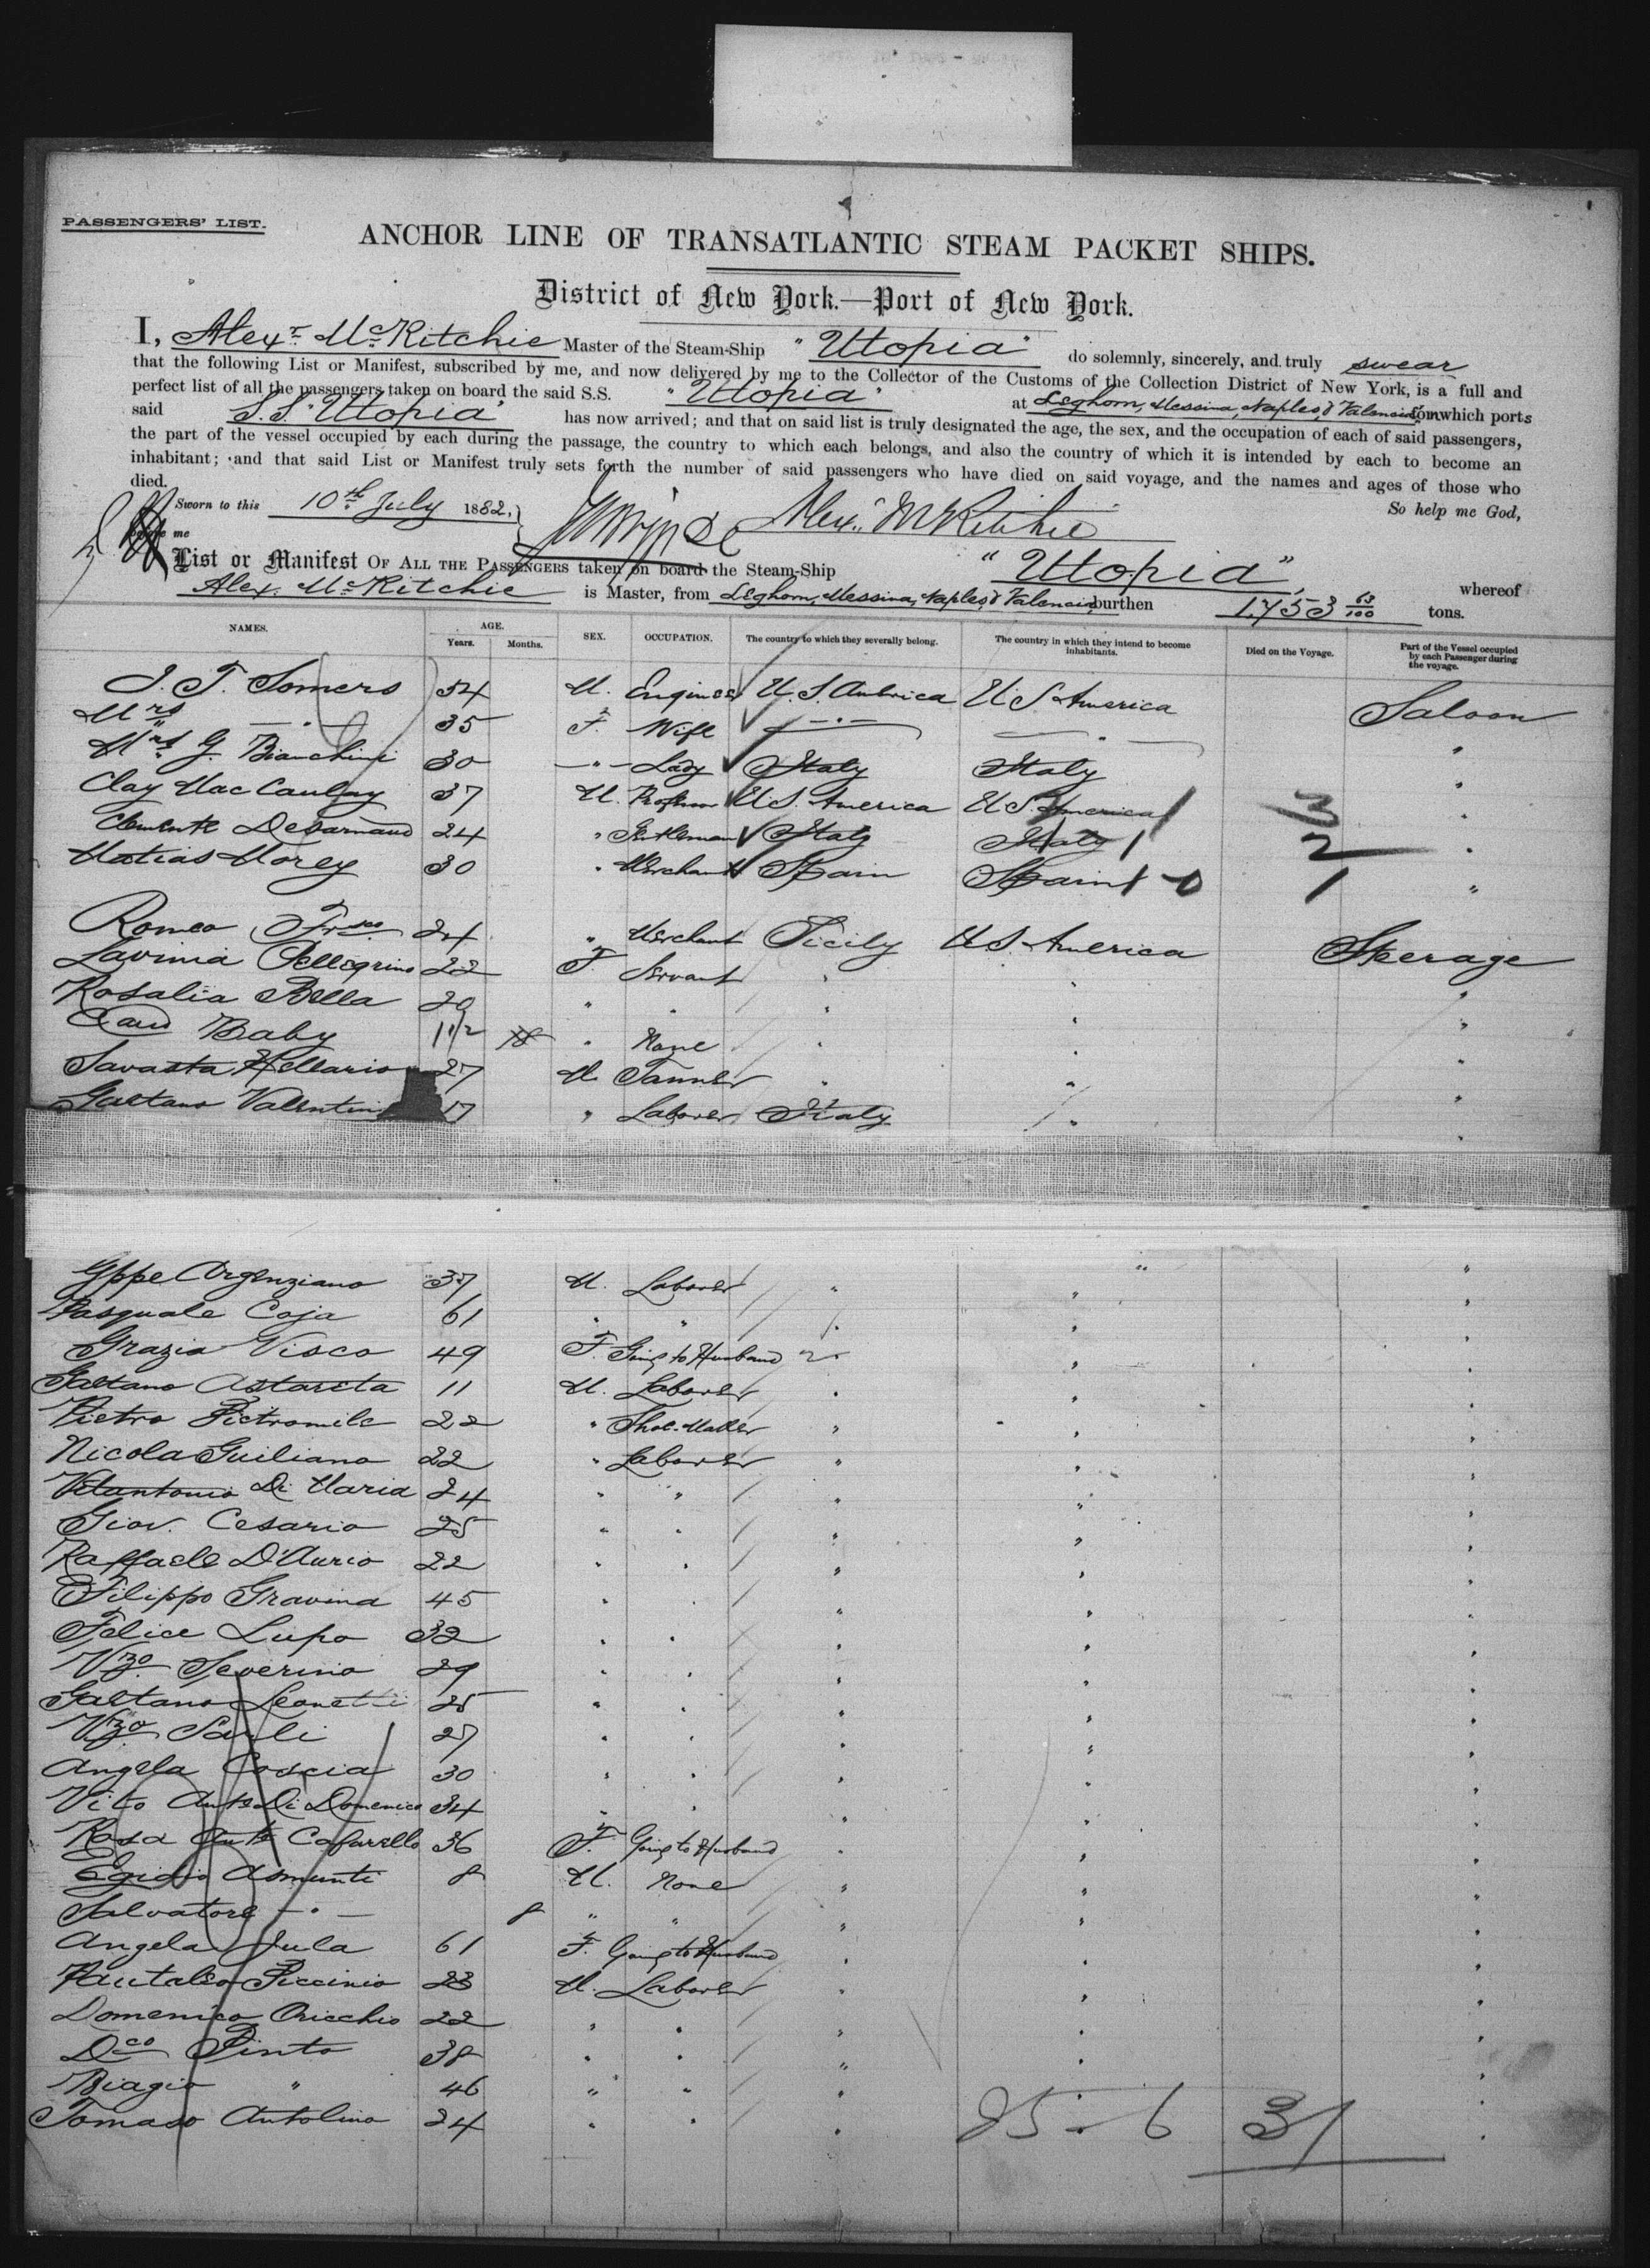 PASSENGERS' LIST.
ANCHOR LINE OF TRANSATLANTIC STEAM PACKET SHIPS.
District of New York.—Port of New York.
I, Alexr. McRitchie Master of the Steam-Ship "Utopia" do solemnly, sincerely, and truly swear
that the following List or Manifest, subscribed by me, and now delivered by me to the Collector of the Customs of the Collection District of New York, is a full and
perfect list of all the passengers taken on board the said S.S. "Utopia" at Leghorn, Messina, Naples & Valencia from which ports
said S.S. "Utopia" has now arrived; and that on said list is truly designated the age, the sex, and the occupation of each of said passengers,
the part of the vessel occupied by each during the passage, the country to which each belongs, and also the country of which it is intended by each to become an
inhabitant; and that said List or Manifest truly sets forth the number of said passengers who have died on said voyage, and the names and ages of those who
died.
So help me God,
Sworn to this 10th July 1882,
before me Alexr. McRitchie
List or Manifest OF ALL THE PASSENGERS taken on board the Steam-Ship "Utopia", whereof
Alex. McRitchie is Master, from Leghorn, Messina, Naples & Valencia burthen 1753 63/100 tons.
NAMES. AGE. Years. Months. SEX. OCCUPATION. The country to which they severally belong. The country in which they intend to become inhabitants. Died on the Voyage. Part of the Vessel occupied by each Passenger during the voyage.
J. T. Somers 54 M. Engineer U.S. America U S America Saloon
Mrs — " — 35 F. Wife — " — "
Mrs G. Bianchini 30 — " — Lady Italy Italy "
Clay MacCauley 37 M. Professor U.S. America U S. America 3 "
Clemente 24 " Gentleman Italy Italy 2 "
Matias Morey 30 " Merchant Spain Spain 1 "
Romeo Frsco 24 " Merchant Sicily U.S. America Steerage
Lavinia Pellegrino 22 F. Servant " " "
Rosalia Bella 20 " " " " "
Baby 11/2 " None " " "
Savasta Hellario 27 M. Tanner " " "
Gaetano Valentini 17 " Laborer Italy " "
Gppe Argenziano 37 M. Laborer " " "
Pasquale Coja 61 " " " " "
Grazia Visco 49 F. Going to Husband " " "
Gaetano Astarita 11 M. Laborer " " "
Pietro Pietromile 22 " Shoe-Maker " " "
Nicola Guiliano 22 " Laborer " " "
Vitantonio Di Maria 24 " " " " "
Giov. Cesario 25 " " " " "
Raffaele D'Aurio 22 " " " " "
Filippo Gravina 45 " " " " "
Felice Lupo 32 " " " " "
Vzo Severino 29 " " " " "
Gaetano Leonetti 25 " " " " "
Vzo Sarli 27 " " " " "
Angela Coscia 30 " " " " "
Vito Anto Di Domenico 34 " " " " "
Rosa Anta Cafarello 36 F. Going to Husband " " "
Egidio Asmunti 8 M. None " " "
Salvatore — " — 8 " " " " "
Angela Jula 61 F. Going to Husband " " "
Pantaleo Piccinio 23 M. Laborer " " "
Domenico Oricchio 22 " " " " "
Dco Pinto 38 " " " " "
Biagio " 46 " " " " "
Tomaso Antolino 24 " " " " "
25 - 6 31